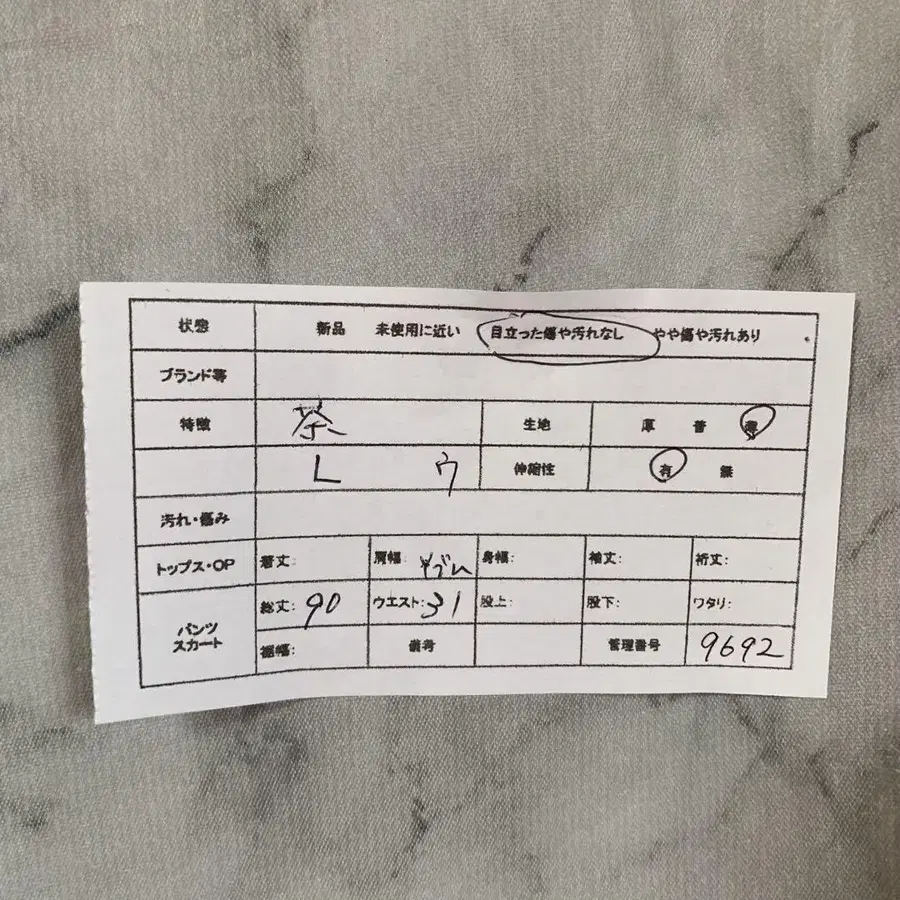 状態 新品 未使用に近い 目立った傷や汚れなし やや傷や汚れあり
ブランド等
特徴 茶 生地 厚 普 薄
L ウ 伸縮性 有 無
汚れ・傷み
トップス・OP 着丈: 肩幅: 身幅: 袖丈: 裄丈:
パンツ スカート 総丈: 90 ウエスト: 31 股上: 股下: ワタリ:
裾幅: 備考 管理番号 9692